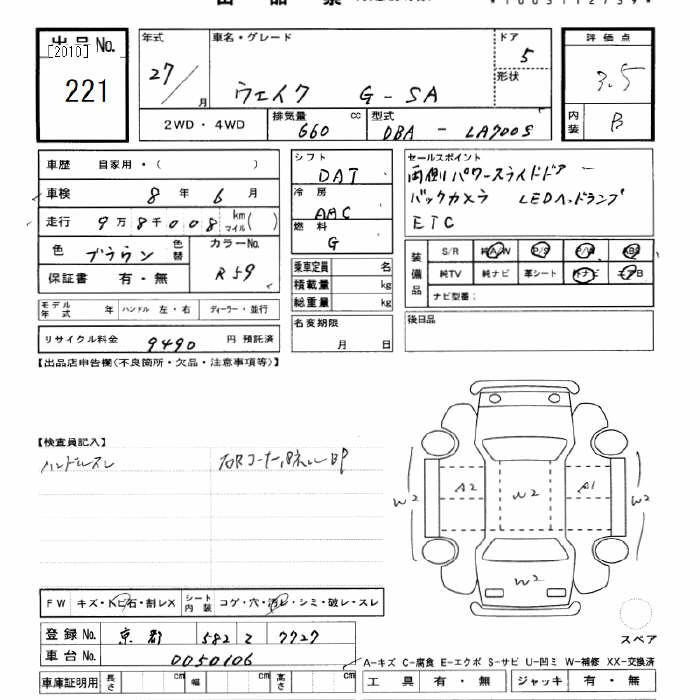 出品No.
[2010]
221
年式
27/ 月
車名・グレード
ウェイク G-SA
ドア
5
形状
評価点
3.5
内装
B
2WD・4WD
排気量 cc
660
型式
DBA-LA700S
車歴 自家用・( )
車検 8年6月
走行 9万8千008 km マイル( )
色 ブラウン 色替
カラーNo.
R59
保証書 有・無
モデル年式 年 ハンドル 左・右 ディーラー・並行
リサイクル料金 9490 円 預託済
シフト
DAT
冷房
AAC
燃料
G
乗車定員 名
積載量 kg
総重量 kg
名変期限
月 日
セールスポイント
両側パワースライドドア
バックカメラ LEDヘッドランプ
ETC
装備品
S/R 純A/W P/S P/W ABS
純TV 純ナビ 革シート 外ナビ エアB
ナビ型番:
後日品
【出品店申告欄(不良箇所・欠品・注意事項等)】
【検査員記入】
ハンドルスレ
右Rコーナーパネル BP
A2
W2
A1
W2
W2
W2
スペア
FW キズ・トビ石・割レX シート内装 コゲ・穴・汚レ・シミ・破レ・スレ
登録No. 京都 582 て 7727
車台No. 0050106
車庫証明用 長さ cm 幅 cm 高さ cm
A-キズ C-腐食 E-エクボ S-サビ U-凹ミ W-補修 XX-交換済
工具 有・無 ジャッキ 有・無